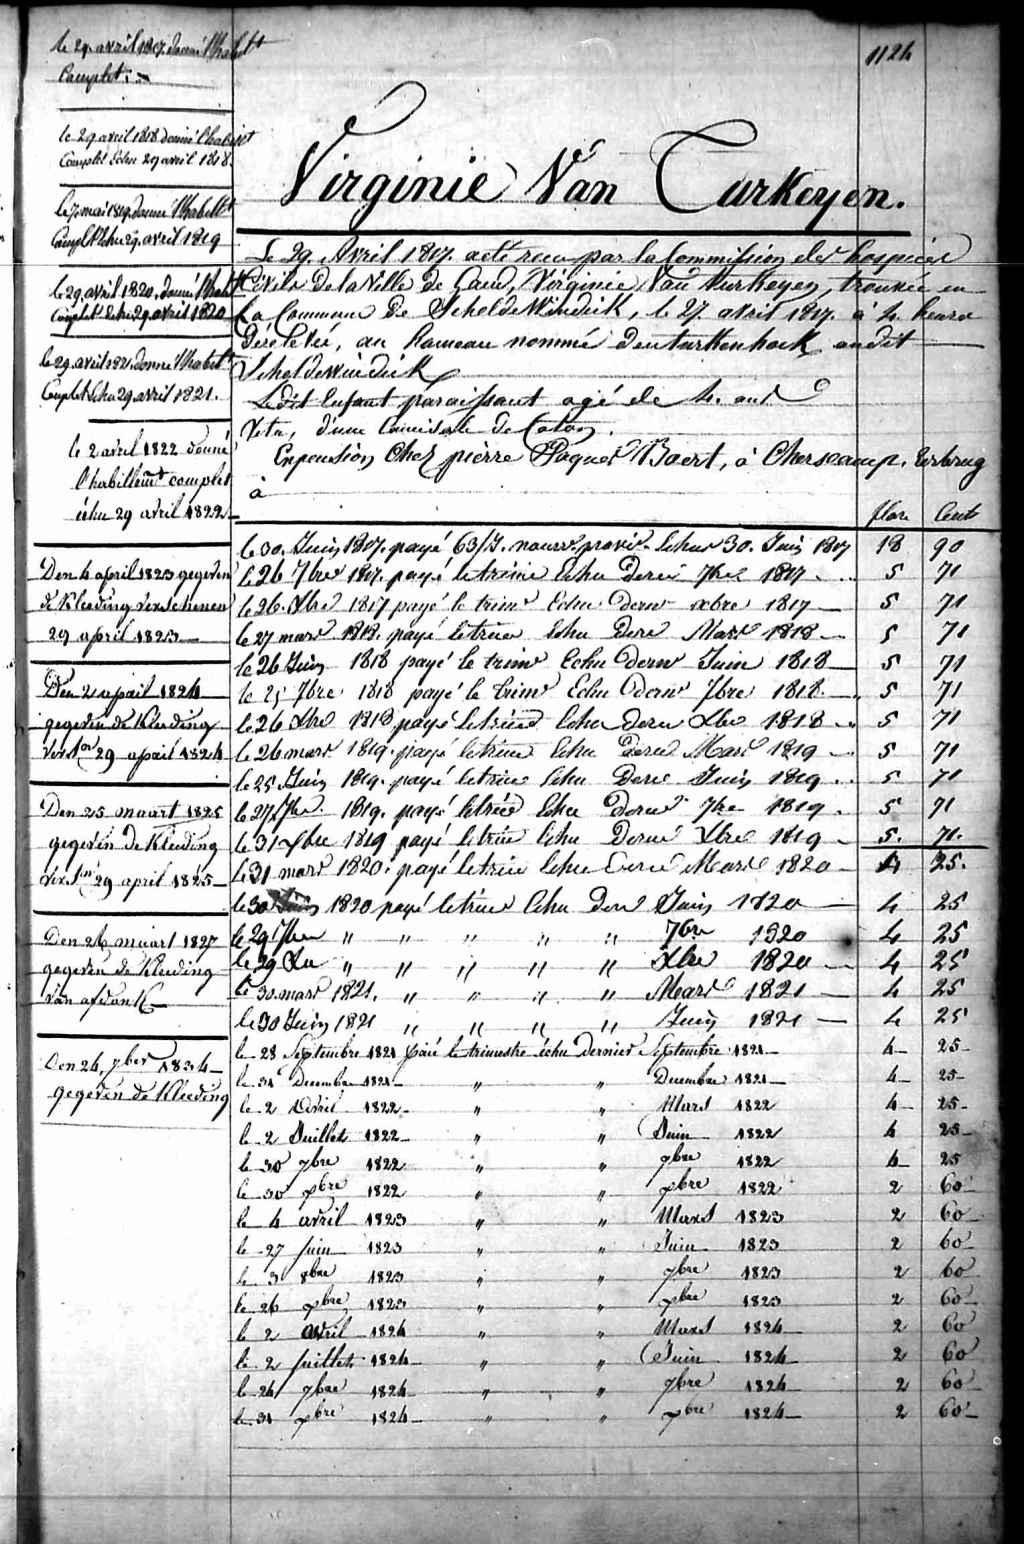 1124
le 29 avril 1817. donné l'habillt
Complet:
le 29 avril 1818 donné l'habillt
Complet Echu 29 avril 1818
le 7 mai 1819. donné l'habillt
Complet Echu 29. avril 1819
le 29. avril 1820. donné l'habillt
Complet Echu 29. avril 1820
le 29. avril 1821. donné l'habillt
Complet Echu 29. avril 1821.
le 2 avril 1822 donné
l'habillemt complet
échu 29 avril 1822
Den 4 april 1823 gegeven
de Kleeding verschenen
29 april 1823
Den 2 april 1824
gegeven de Kleeding
29 april 1824
Den 25 maart 1825
gegeven de Kleeding
29 april 1825
Den 26 maart 1827
gegeven de Kleeding
Den 24 7ber 1834
gegeven de Kleeding
Virginie Van Turkeyen.
Le 29. Avril 1817. acté recu par la Commission des hospices
Civils de la Ville de Gand, Virginie Van Turkeyen, trouvée en
La Commune de Scheldewindick, le 27. avril 1817. à 4. heures
au hameau nommé Denturkenhoek audit
Scheldewindick
Ledit Enfant paraissant agé de 4. ans
Vetu, d'une Camisole de Coton.
En pension Chez pierre Baert, à Cherscamp.
à
flor. Cents
le 30. Juin 1817. payé 63/J. nourr. provis. Echus 30. Juin 1817 18 90
le 26 7bre 1817. payé le trime Echu dernr 7bre 1817 5 71
le 26. Xbre 1817 payé le trimr Echu dernr xbre 1817 5 71
le 27 mars 1818. payé le trimr Echu dernr Mars 1818 5 71
le 26 Juin 1818 payé le trimr Echu dernr Juin 1818 5 71
le 25 7bre 1818 payé le trimr Echu dernr 7bre 1818 5 71
le 26 Xbre 1818 payé le trimr Echu dernr Xbre 1818 5 71
le 26 mars 1819. payé le trimr Echu dernr Mars 1819 5 71
le 25 Juin 1819. payé le trimr Echu dernr Juin 1819 5 71
le 27 7bre 1819. payé le trimr Echu dernr 7bre 1819 5 71
le 31 Xbre 1819 payé le trimr Echu dernr Xbre 1819 5. 71.
le 31 mars 1820. payé le trimr Echu dernr Mars 1820 4 25.
le 30 Juin 1820 payé le trimr Echu dernr Juin 1820 4 25
le 29 7bre " " " " " 7bre 1820 4 25
le 29 Xbre " " " " " Xbre 1820 4 25
le 30 mars 1821. " " " " Mars 1821 4 25
le 30 Juin 1821 " " " " Juin 1821 4 25
le 28 Septembre 1821 païé le trimestre échu dernier Septembre 1821 4 25
le 31 Decembre 1821 " " Decembre 1821 4 25
le 2 Avril 1822 " " Mars 1822 4 25
le 2 Juillet 1822 " " Juin 1822 4 25
le 30 7bre 1822 " " 7bre 1822 4 25
le 30 xbre 1822 " " xbre 1822 2 60
le 4 avril 1823 " " Mars 1823 2 60
le 27 juin 1823 " " Juin 1823 2 60
le 3 8bre 1823 " " 7bre 1823 2 60
le 26 xbre 1823 " " xbre 1823 2 60
le 2 avril 1824 " " Mars 1824 2 60
le 2 juillet 1824 " " Juin 1824 2 60
le 24 7bre 1824 " " 7bre 1824 2 60
le 31 xbre 1824 " " xbre 1824 2 60